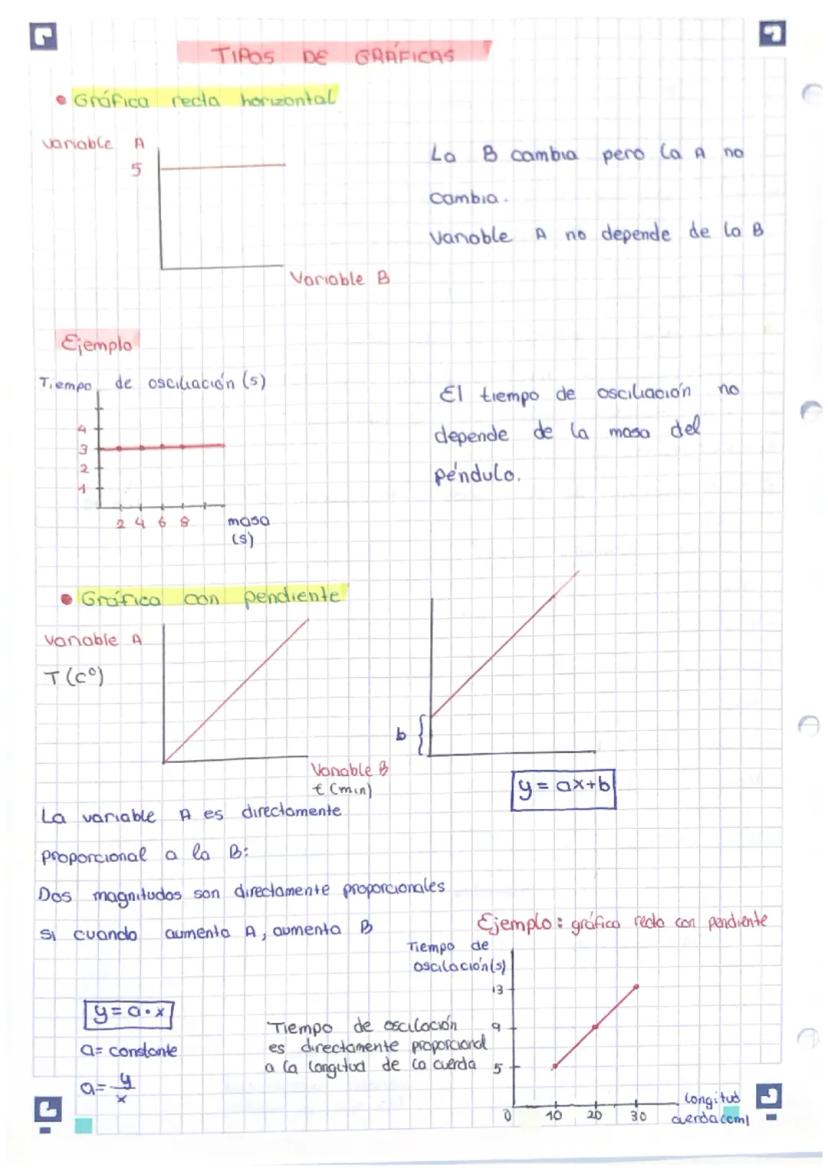 TIPOS DE GRÁFICAS
• Gráfica recta horizontal
variable A
5
Variable B
La B cambia pero la A no
cambia.
Variable A no depende de la B
Ejemplo
Tiempo de osciliación (s)
4
3
2
1
2 4 6 8
masa
(s)
El tiempo de osciliación no
depende de la masa del
péndulo.
• Gráfica con pendiente
variable A
T (cº)
Variable B
t (min)
b
y = ax+b
La variable A es directamente
proporcional a la B:
Dos magnitudes son directamente proporcionales
si cuando aumenta A, aumenta B
y = a · x
a= constante
a= y
x
Ejemplo: gráfica recta con pendiente
Tiempo de
oscilación (s)
13
9
5
0 10 20 30
longitud
cuerda (cm)
Tiempo de oscilación
es directamente proporcional
a la longitud de la cuerda